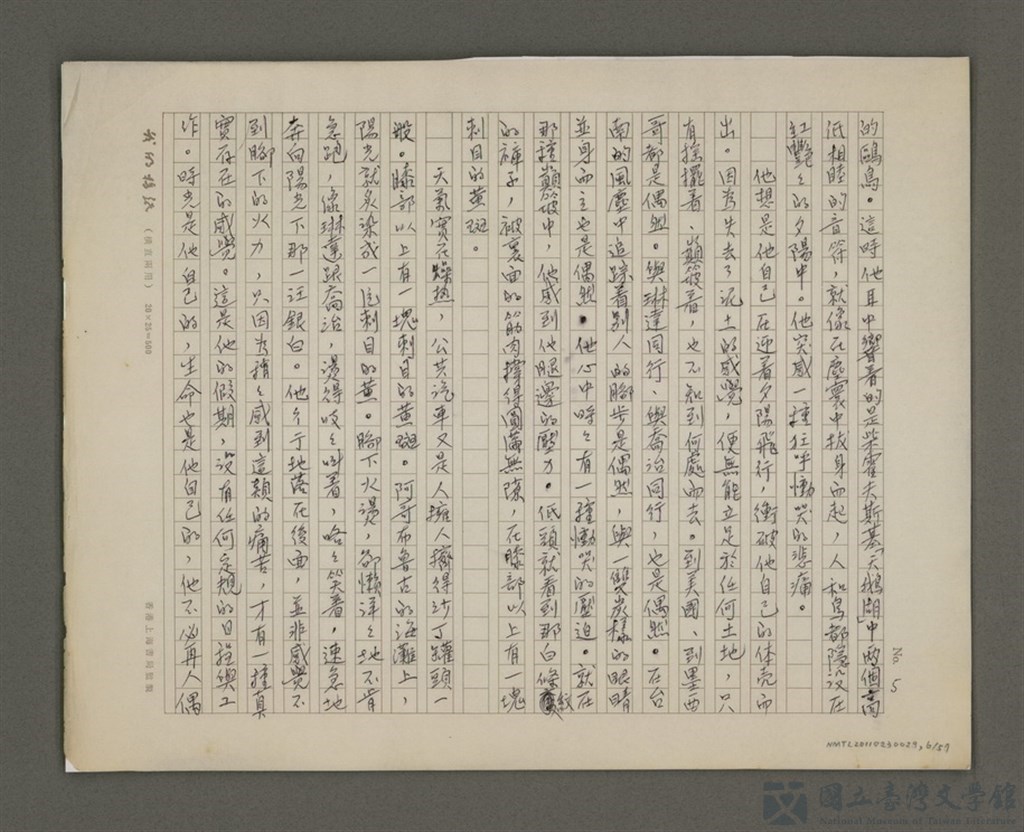 No. 5
的鷗鳥。這時他耳中響着的是柴霍夫斯基「天鵝湖」中兩個高
低相睦的音符，就像在塵寰中拔身而起，人和鳥都隱沒在
紅艷艷的夕陽中。他突感一種狂呼慟哭的悲痛。
他想是他自己在迎着夕陽飛行，衝破他自己的体壳而
出。因為失去了泥土的感覺，便無能立足於任何土地，只
有搖擺着、巔簸着，也不知到何處而去。到美國、到墨西
哥都是偶然。與琳達同行、與喬治同行，也是偶然。在台
南的風塵中追踪着別人的腳步是偶然，與一雙炭樣的眼睛
並身而立也是偶然。他心中時々有一種慟哭的壓迫。就在
那種巔簸中，他感到他腿邊的壓力。低頭就看到那白條紋
的褲子，被裏面的筋肉撑得圓滿無隙，在膝部以上有一塊
刺目的黄斑。
天氣實在燥热，公共汽車又是人擁人擠得沙丁罐頭一
般。膝部以上有一塊刺目的黄斑。阿哥布魯古的海灘上，
陽光就炙染成一片刺目的黄。腳下火燙，卻懶洋々地不肯
急跑，像琳達跟喬治，燙得吱々叫着，咯々笑着，速急地
奔向陽光下那一汪銀白。他个亍地落在後面，並非感覺不
到腳下的火力，只因為稍々感到這類的痛苦，才有一種真
實存在的感覺。這是他的假期，沒有任何定規的日程與工
作。時光是他自己的，生命也是他自己的，他不必再人偶
我的稿紙
（橫直兩用） 20×25=500
香港上海書局監製
NMTL20110230023, 6/57
國立臺灣文學館
National Museum of Taiwan Literature